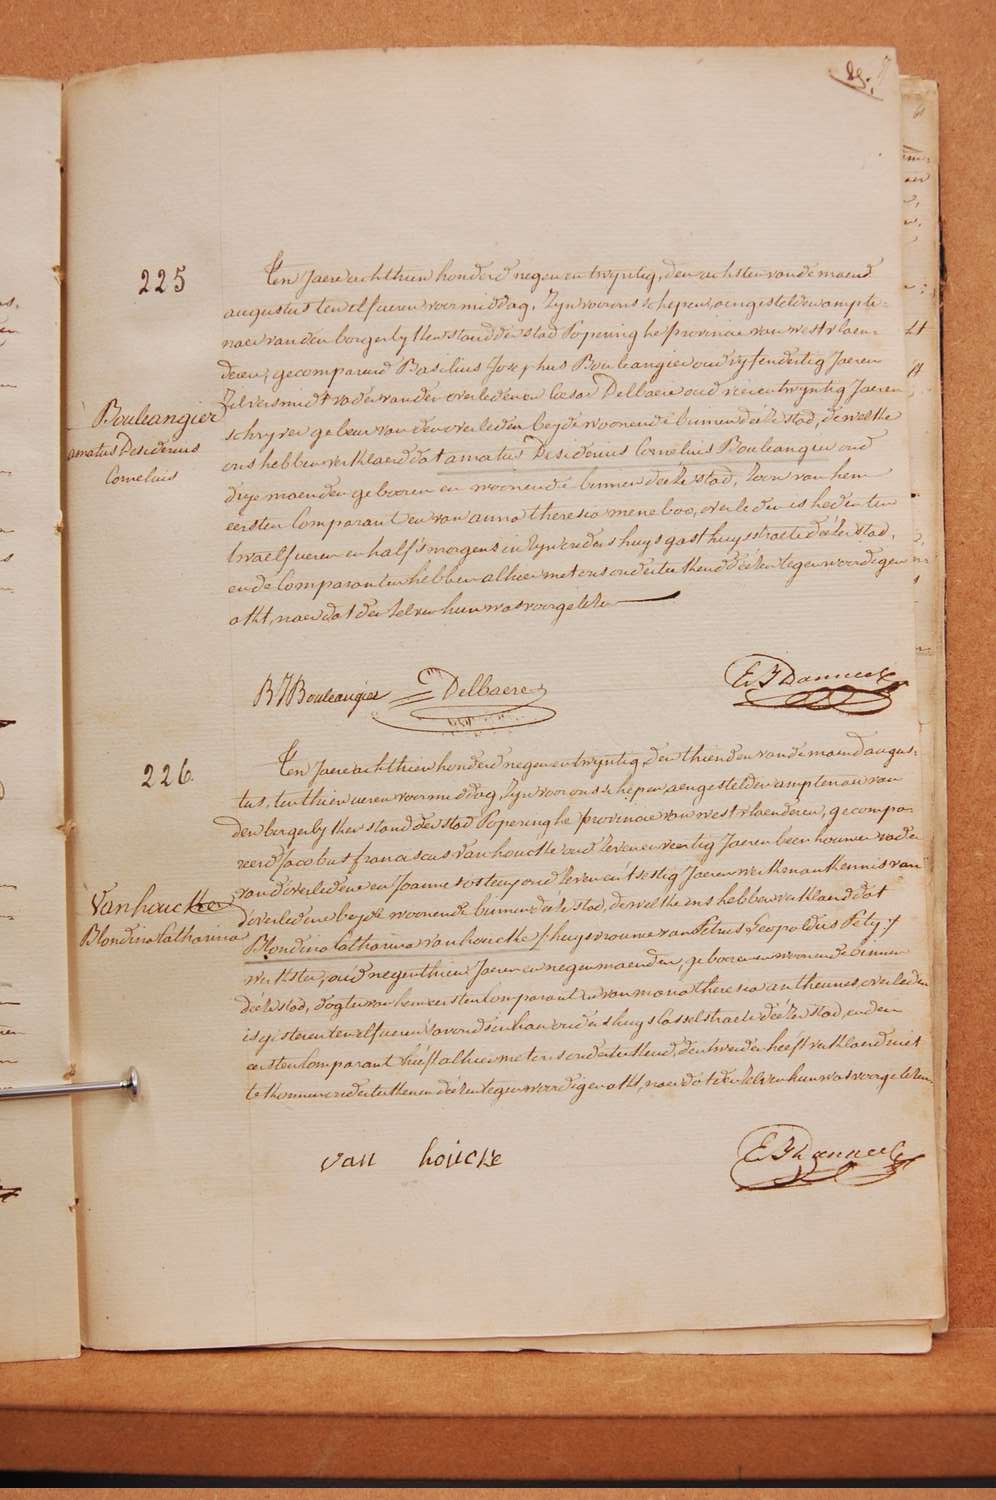 225
Ten Jaere achthien honderd negen en twyntig, den achsten van de maend
augustus ten elf ueren voormiddag, zyn voor ons schepen, aengestelden ampte-
naer van den borgerlyken stand der stad Poperinghe provincie van westvlaen-
deren, gecompareerd Basilius Josephus Bouleangier oud vyfendertig Jaeren
zilversmidt vader van den overledenen en Cæsar Delbaere oud vierentwyntig Jaeren
schryver gebeur van den overleden beyde woonende binnen deéze stad, dewelke
ons hebben verklaerd dat amatus Desiderius Cornelius Bouleangier oud
drye maenden gebooren en woonende binnen deéze stad, zoon van hem
eersten Comparant en van anna theresia meneboo, overleden is heden ten
twaelf ueren en half s'morgens in zyn vreders huys gasthuysstraete deézer stad,
en de Comparanten hebben alhier met ons onderteekend deézen tegenwoordigen
akt, naer dat den zelven hun was voorgelezen
Bouleangier
amatus Desiderius
Cornelius
BJBouleangier C Delbaere E F Danneel
226
Ten Jaere achthien honderd negen en twyntig, den thienden van de maend augus-
tus, ten thien ueren voormiddag, zyn voor ons schepen aengestelden amptenaer van
den borgerlyken stand der stad Poperinghe provincie van westvlaenderen, gecompa-
reerd Jacobus franciscus Vanhoucke oud zevenenveertig Jaeren beenhouwer vader
van d'overledene en Joannes ostenyoud zevenentsestig Jaeren werkman kennis van
d'overledene beyde woonende binnen deéze stad, dewelke ons hebben verklaerd dat
Blondina Catharina vanhoucke /:huysvrouwe van Petrus Leopoldus Pety:/
werkster, oud negenthien Jaeren en negen maenden, gebooren en woonende binnen
deéze stad, dogter van hem eersten Comparant en van maria theresia antheunes, overleden
is gisteren ten elf ueren s'avonds in haer ouders huys Casselstraete deézer stad, en den
eersten Comparant heéft alhier met ons onderteekend, den tweéden heéft verklaerd niet
te konnen onderteekenen deézen tegenwoordigen akt, naer dat den zelven hun was voorgelezen.
Vanhoucke
Blondina Catharina
van houcke E F Danneel